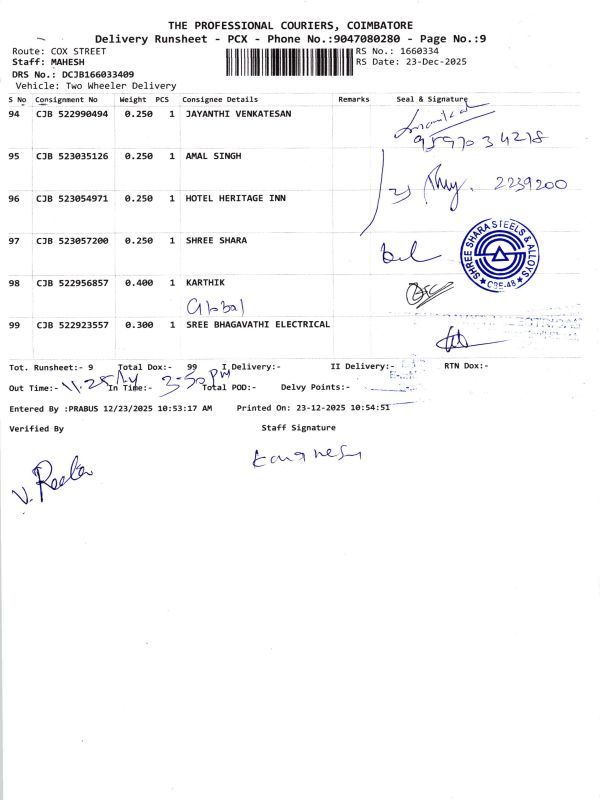 THE PROFESSIONAL COURIERS, COIMBATORE
Delivery Runsheet - PCX - Phone No.:9047080280 - Page No.:9
Route: COX STREET RS No.: 1660334
Staff: MAHESH RS Date: 23-Dec-2025
DRS No.: DCJB166033409
Vehicle: Two Wheeler Delivery
S No Consignment No Weight PCS Consignee Details Remarks Seal & Signature
94 CJB 522990494 0.250 1 JAYANTHI VENKATESAN
9597034218
95 CJB 523035126 0.250 1 AMAL SINGH
2239200
96 CJB 523054971 0.250 1 HOTEL HERITAGE INN
97 CJB 523057200 0.250 1 SHREE SHARA
SHREE SHARA STEELS & ALLOYS
CBE-48
98 CJB 522956857 0.400 1 KARTHIK
Global
99 CJB 522923557 0.300 1 SREE BHAGAVATHI ELECTRICAL
Tot. Runsheet:- 9 Total Dox:- 99 I Delivery:- II Delivery:- RTN Dox:-
Out Time:- 11.25 In Time:- 3-50 pm Total POD:- Delvy Points:-
Entered By :PRABUS 12/23/2025 10:53:17 AM Printed On: 23-12-2025 10:54:51
Verified By Staff Signature